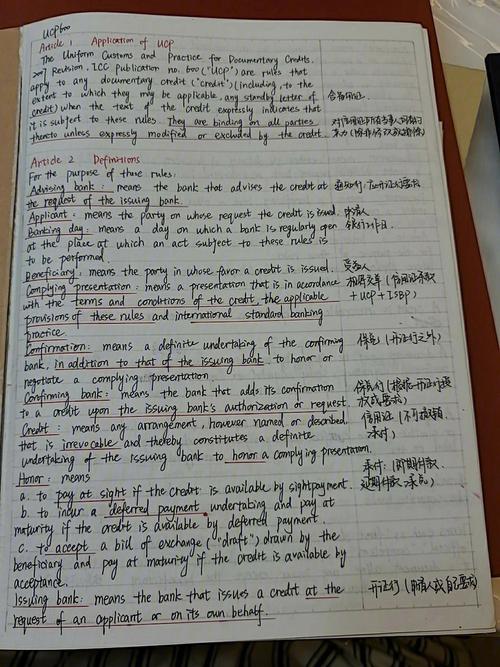 UCP600
Article 1 Application of UCP
The Uniform Customs and Practice for Documentary Credits.
2007 Revision, ICC Publication no. 600 ("UCP") are rules that
apply to any documentary credit ("credit") (including, to the
extent to which they may be applicable, any standby letter of
credit) when the text of the credit expressly indicates that
it is subject to these rules. They are binding on all parties
thereto unless expressly modified or excluded by the credit.
Article 2 Definitions
For the purpose of these rules:
Advising bank: means the bank that advises the credit at 通知行
the request of the issuing bank.
Applicant: means the party on whose request the credit is issued. 申请人
Banking day: means a day on which a bank is regularly open 银行工作日
at the place at which an act subject to these rules is
to be performed.
Beneficiary: means the party in whose favor a credit is issued. 受益人
Complying presentation: means a presentation that is in accordance 相符交单 (信用证条款
with the terms and conditions of the credit, the applicable + UCP + ISBP)
provisions of these rules and international standard banking
practice.
Confirmation: means a definite undertaking of the confirming 保兑 (开证行之外)
bank, in addition to that of the issuing bank, to honor or
negotiate a complying presentation.
Confirming bank: means the bank that adds its confirmation 保兑行 (根据开证行授
to a credit upon the issuing bank's authorization or request. 权或要求)
Credit: means any arrangement, however named or described, 信用证 (不可撤销
that is irrevocable and thereby constitutes a definite 承付)
undertaking of the issuing bank to honor a complying presentation.
Honor: means 承付: (即期付款
a. to pay at sight if the credit is available by sight payment. 延期付款 承兑)
b. to incur a deferred payment undertaking and pay at
maturity if the credit is available by deferred payment.
c. to accept a bill of exchange ("draft") drawn by the
beneficiary and pay at maturity if the credit is available by
acceptance.
Issuing bank: means the bank that issues a credit at the 开证行 (申请人或自己要求)
request of an applicant or on its own behalf.